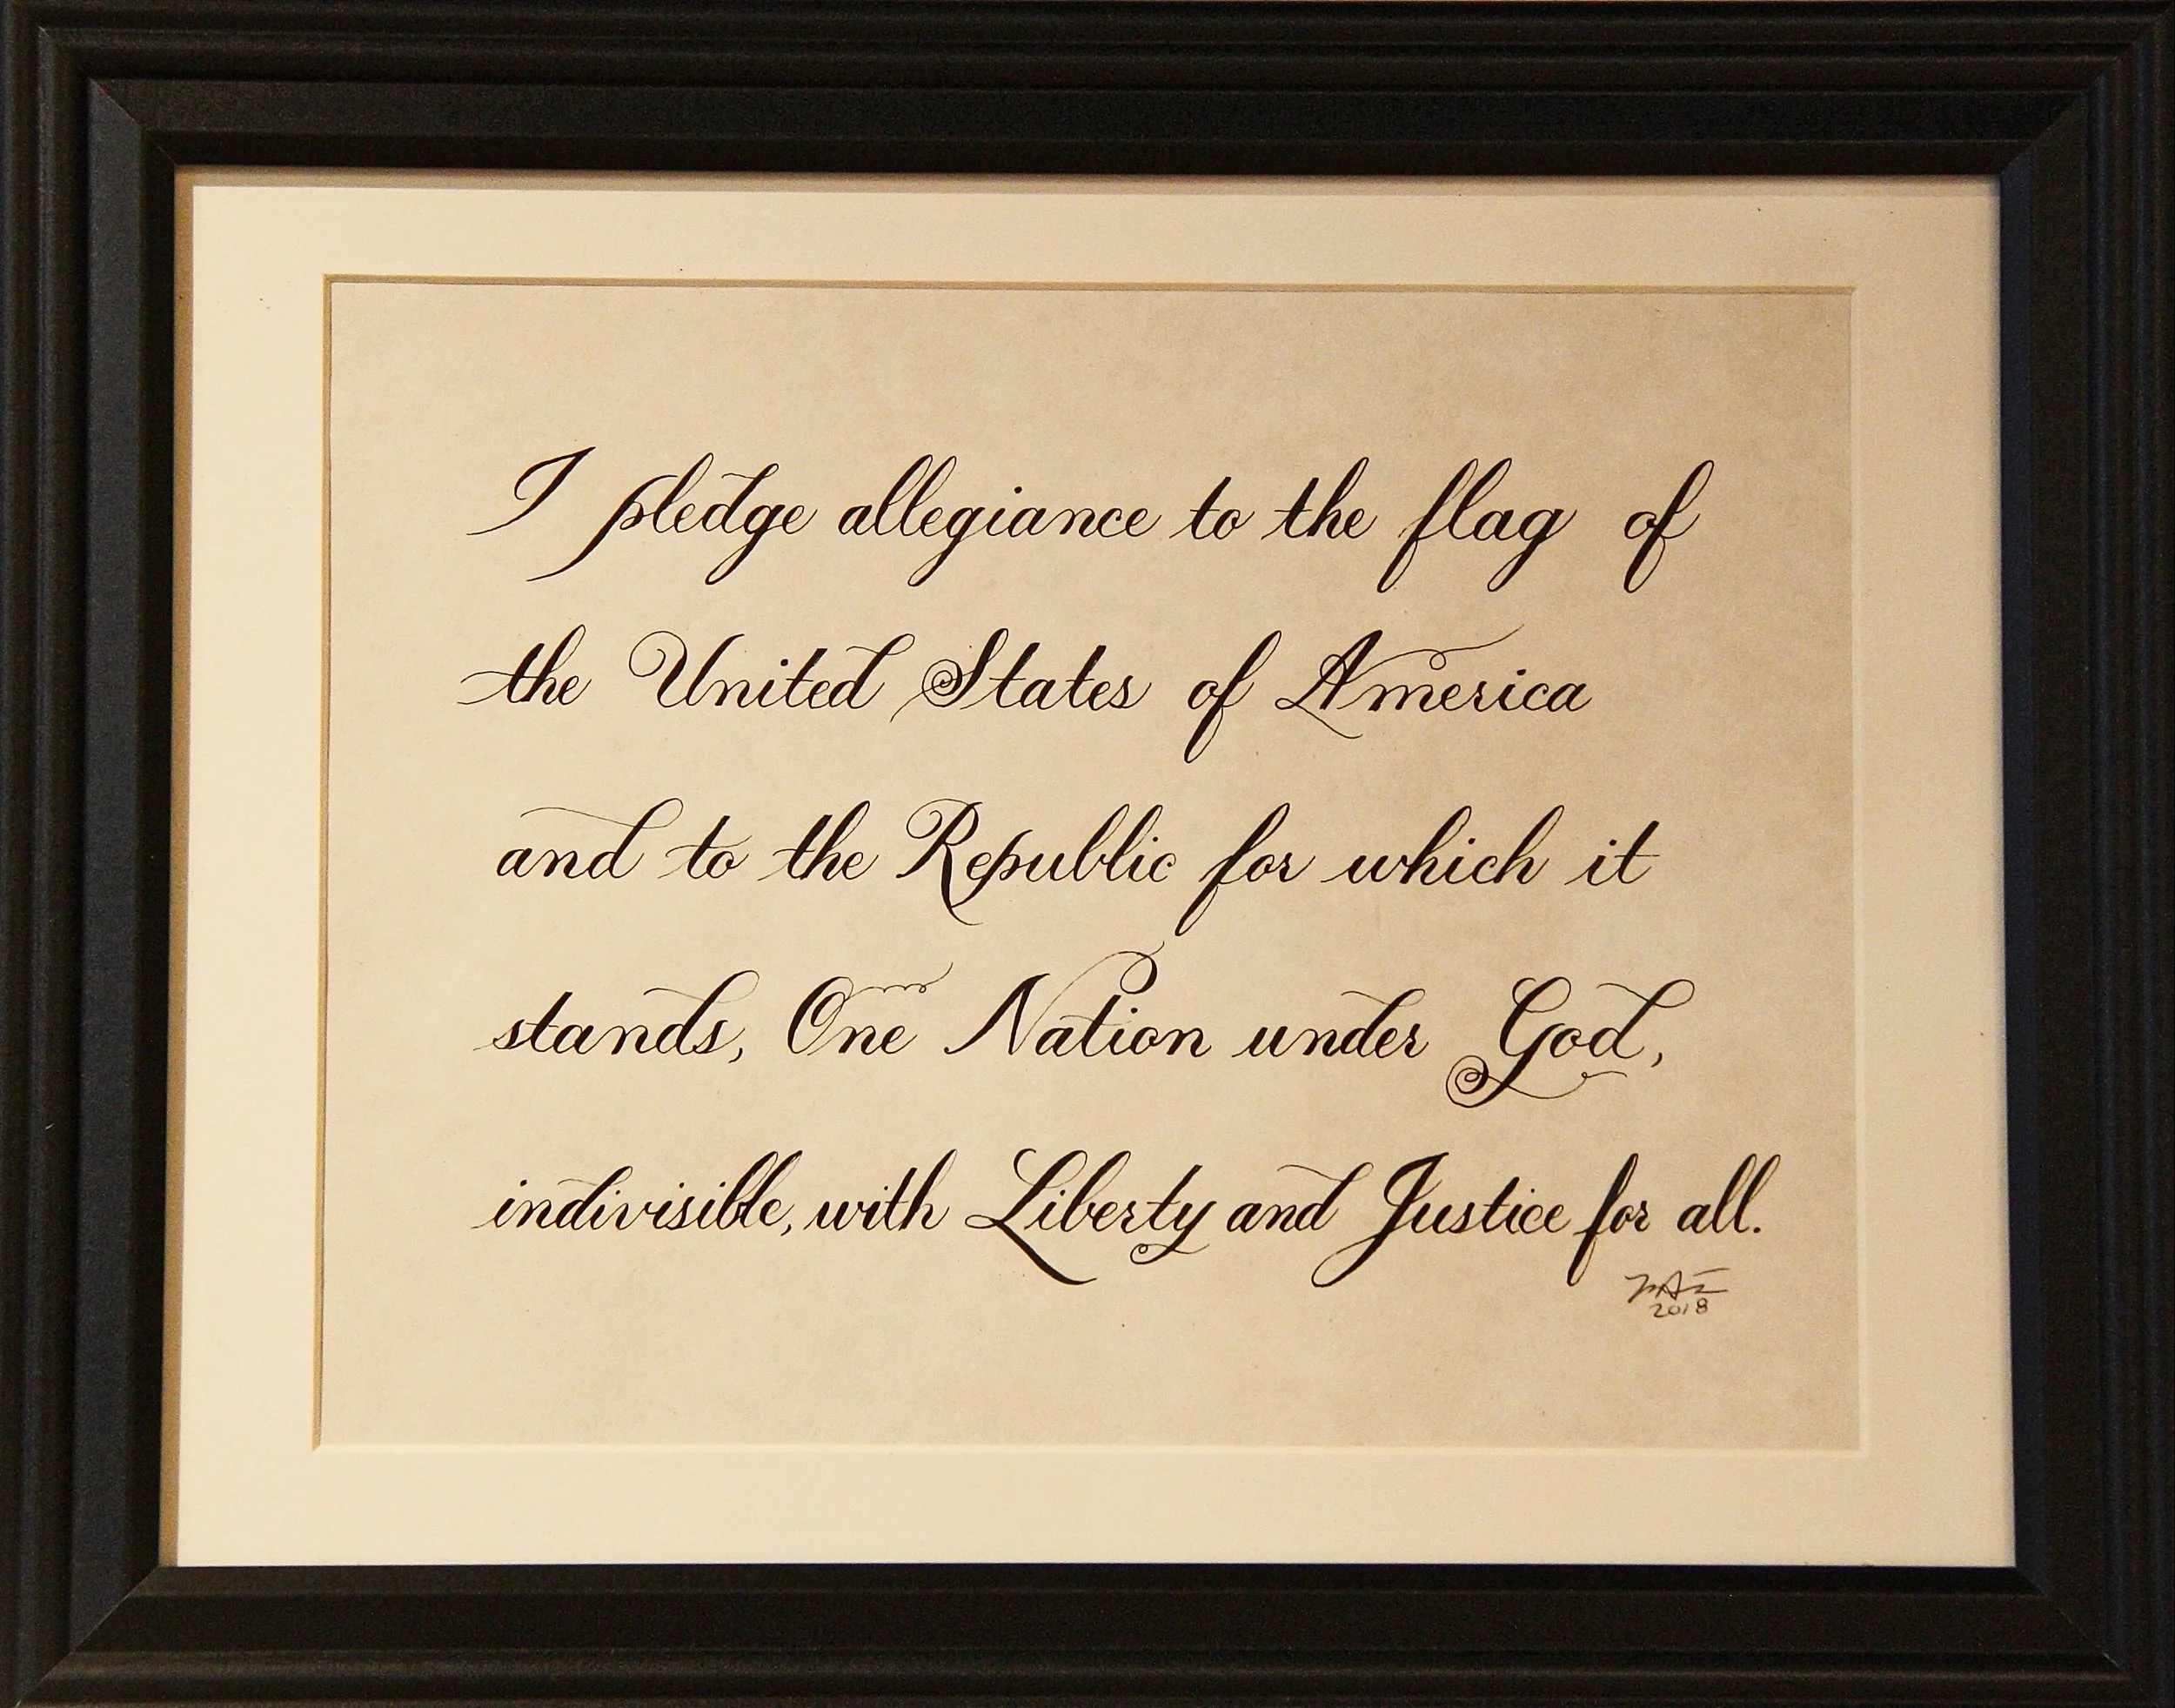 I pledge allegiance to the flag of
the United States of America
and to the Republic for which it
stands, One Nation under God,
indivisible, with Liberty and Justice for all.
2018